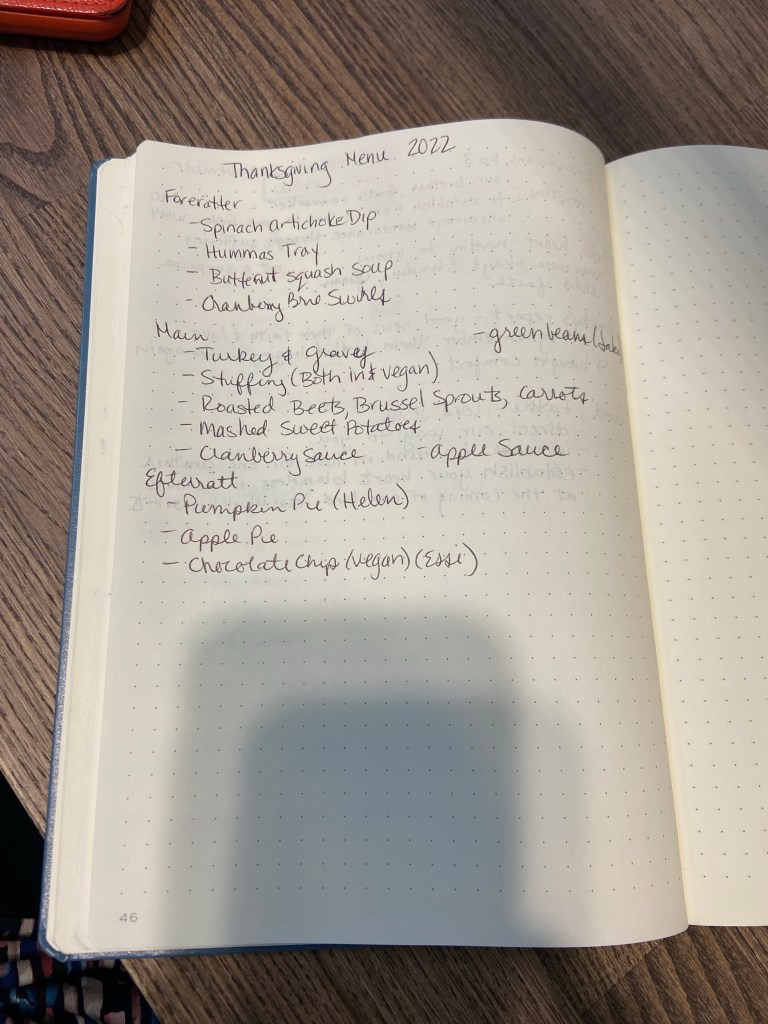 Thanksgiving Menu 2022
Förerätter
- Spinach artichoke Dip
- Hummas Tray
- Butternut squash soup
- Cranberry Brie Swirls
Main
- green beans
- Turkey & gravey
- Stuffing (Both in & vegan)
- Roasted Beets, Brussel Sprouts, Carrots
- Mashed Sweet Potatoes
- Cranberry Sauce - apple Sauce
Efterrätt
- Pumpkin Pie (Helen)
- apple Pie
- Chocolate Chip (vegan) (Essi)
46